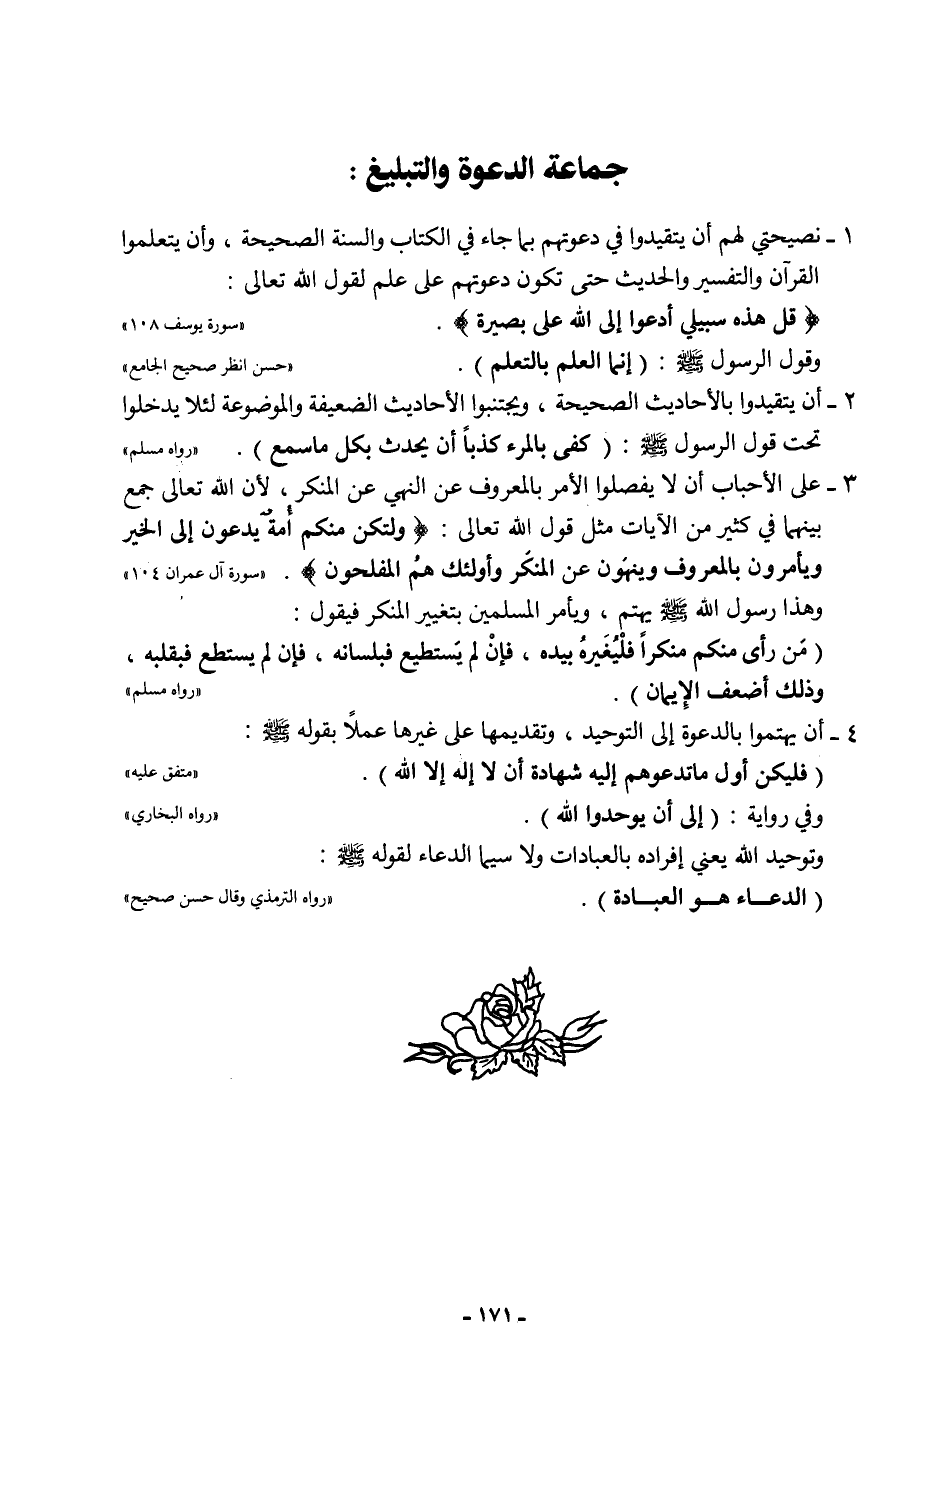 جماعة الدعوة والتبليغ :
١ - نصيحتي لهم أن يتقيدوا في دعوتهم بما جاء في الكتاب والسنة الصحيحة ، وأن يتعلموا
القرآن والتفسير والحديث حتى تكون دعوتهم على علم لقول الله تعالى :
﴿ قل هذه سبيلي أدعوا إلى الله على بصيرة ﴾ . «سورة يوسف ١٠٨»
وقول الرسول ﷺ : ( إنما العلم بالتعلم ) . «حسن انظر صحيح الجامع»
٢ - أن يتقيدوا بالأحاديث الصحيحة ، ويجتنبوا الأحاديث الضعيفة والموضوعة لئلا يدخلوا
تحت قول الرسول ﷺ : ( كفى بالمرء كذباً أن يحدث بكل ماسمع ) . «رواه مسلم»
٣ - على الأحباب أن لا يفصلوا الأمر بالمعروف عن النهي عن المنكر ، لأن الله تعالى جمع
بينهما في كثير من الآيات مثل قول الله تعالى : ﴿ ولتكن منكم أُمةٌ يدعون إلى الخير
ويأمرون بالمعروف وينهَون عن المنكَر وأولئك همُ المفلحون ﴾ . «سورة آل عمران ١٠٤»
وهذا رسول الله ﷺ يهتم ، ويأمر المسلمين بتغيير المنكر فيقول :
( مَن رأى منكم منكراً فلْيُغَيرهُ بيده ، فإنْ لم يَستطيع فبلسانه ، فإن لم يستطع فبقلبه ،
وذلك أضعف الإِيمان ) . «رواه مسلم»
٤ - أن يهتموا بالدعوة إلى التوحيد ، وتقديمها على غيرها عملاً بقوله ﷺ :
( فليكن أول ماتدعوهم إليه شهادة أن لا إله إلا الله ) . «متفق عليه»
وفي رواية : ( إلى أن يوحدوا الله ) . «رواه البخاري»
وتوحيد الله يعني إفراده بالعبادات ولا سيما الدعاء لقوله ﷺ :
( الدعـــاء هـــو العبـــادة ) . «رواه الترمذي وقال حسن صحيح»
- ١٧١ -